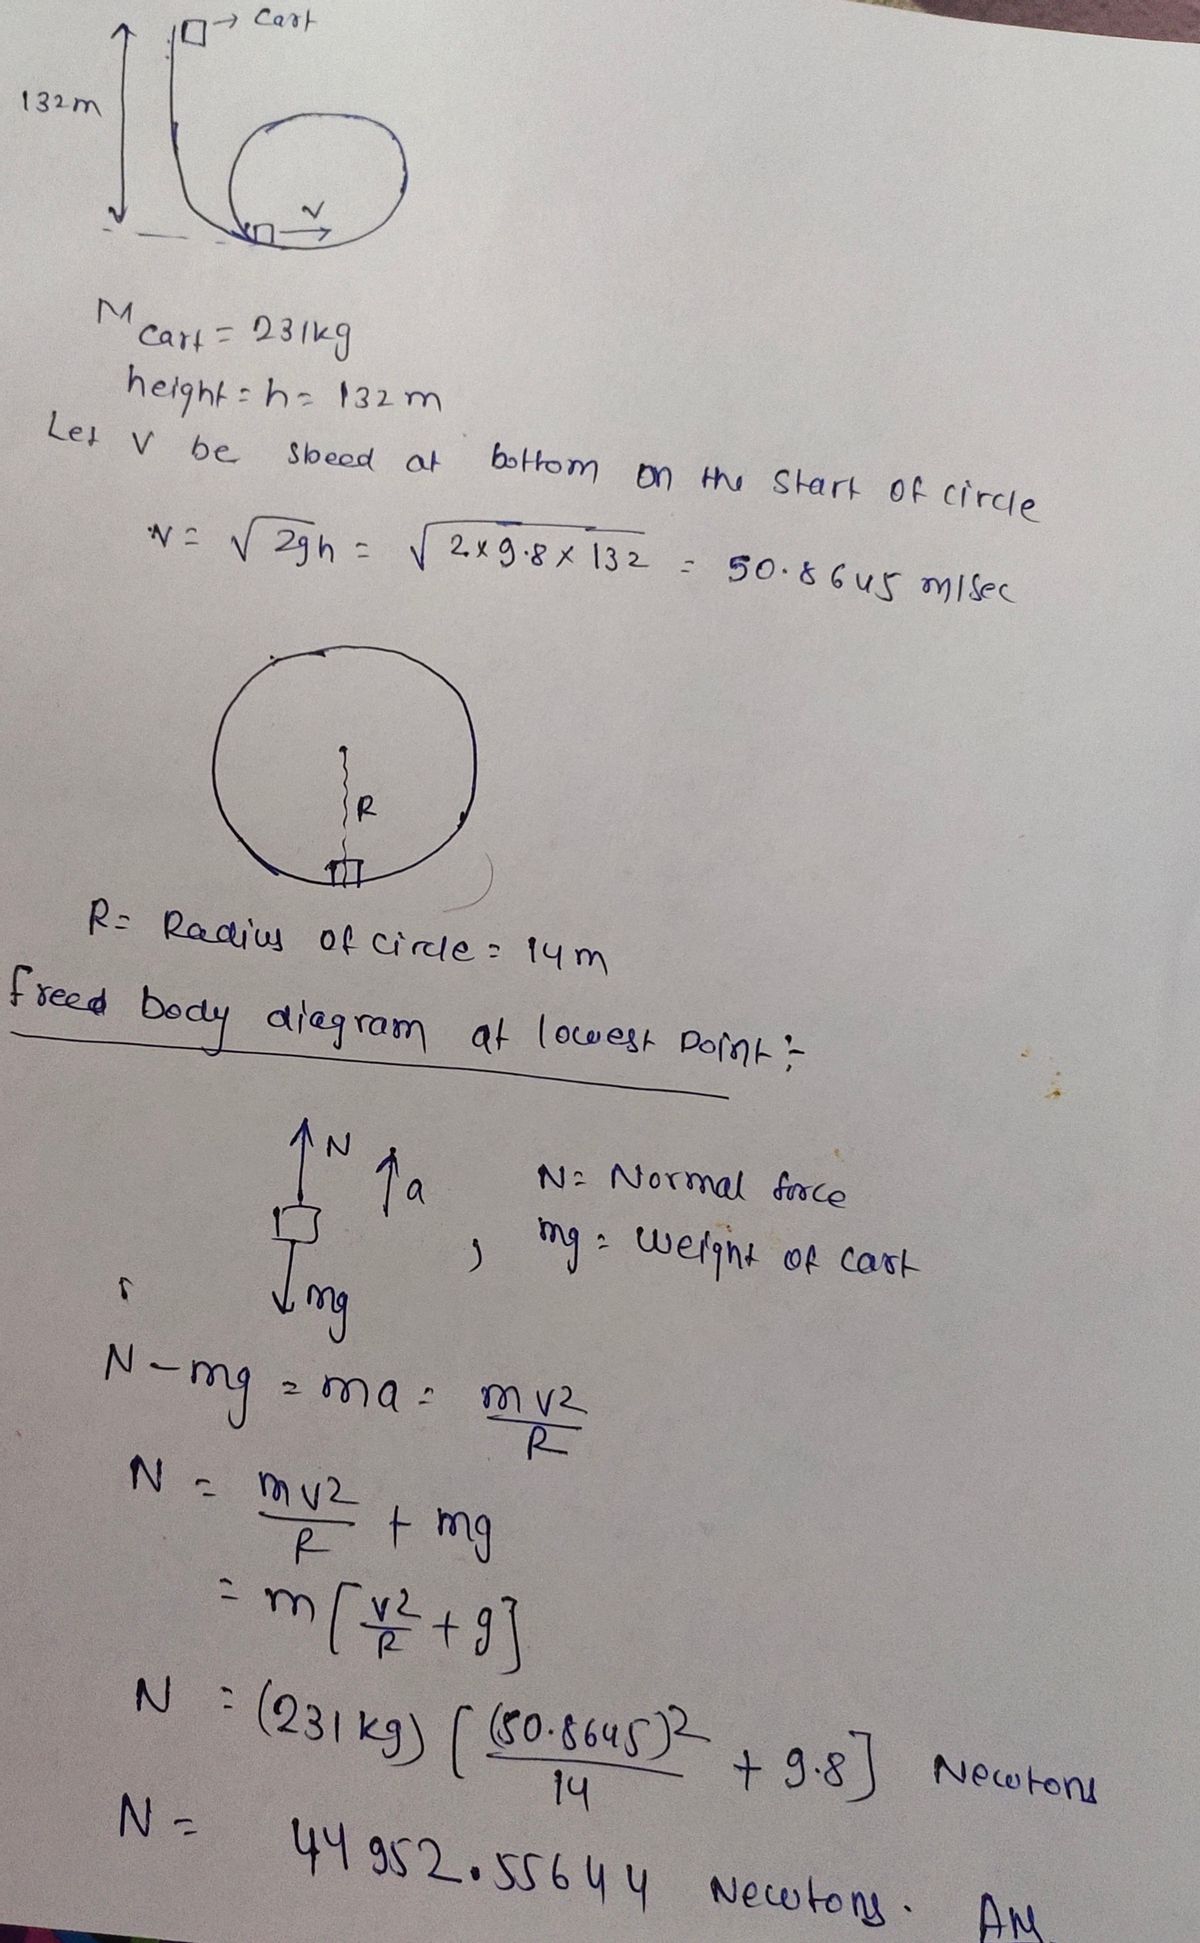 → Cart
132m
V
M cart = 231kg
height = h = 132 m
Let V be sbeed at bottom on the Start of circle
V = √2gh = √2×9.8×132 = 50.8645 m/sec
R
R = Radius of circle = 14m
freed body diagram at lowest Point :-
N
a , N = Normal force
mg = weight of cart
mg
N - mg = ma = mv2/R
N = mv2/R + mg
= m[v2/R + g]
N = (231 kg) [(50.8645)2/14 + 9.8] Newtons
N = 44952.55644 Newtons. AM